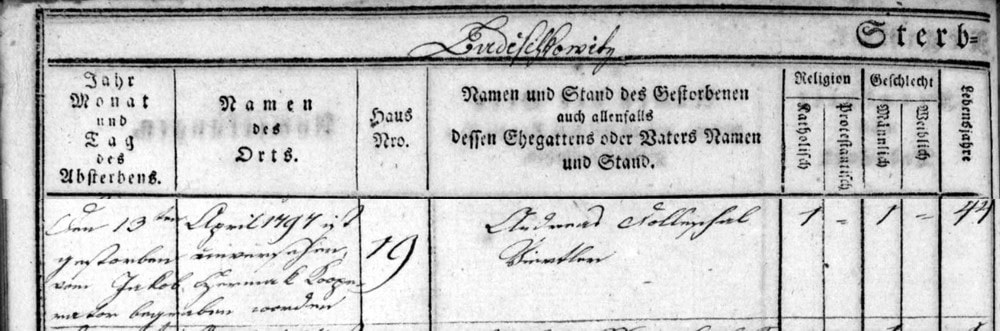 Ladischkowitz
Sterb=
Jahr
Monat
und
Tag
des
Absterbens.
Namen
des
Orts.
Haus
Nro.
Namen und Stand des Gestorbenen
auch allenfalls
dessen Ehegattens oder Vaters Namen
und Stand.
Religion
Katholisch
Protestantisch
Geschlecht
Männlich
Weiblich
Lebensjahre
Den 13ten April 1797 ist
gestorben unversehen
vom Jakob Hermak Koope-
rator begraben worden
19
Andreas
Viertler
1 = 1 = 44